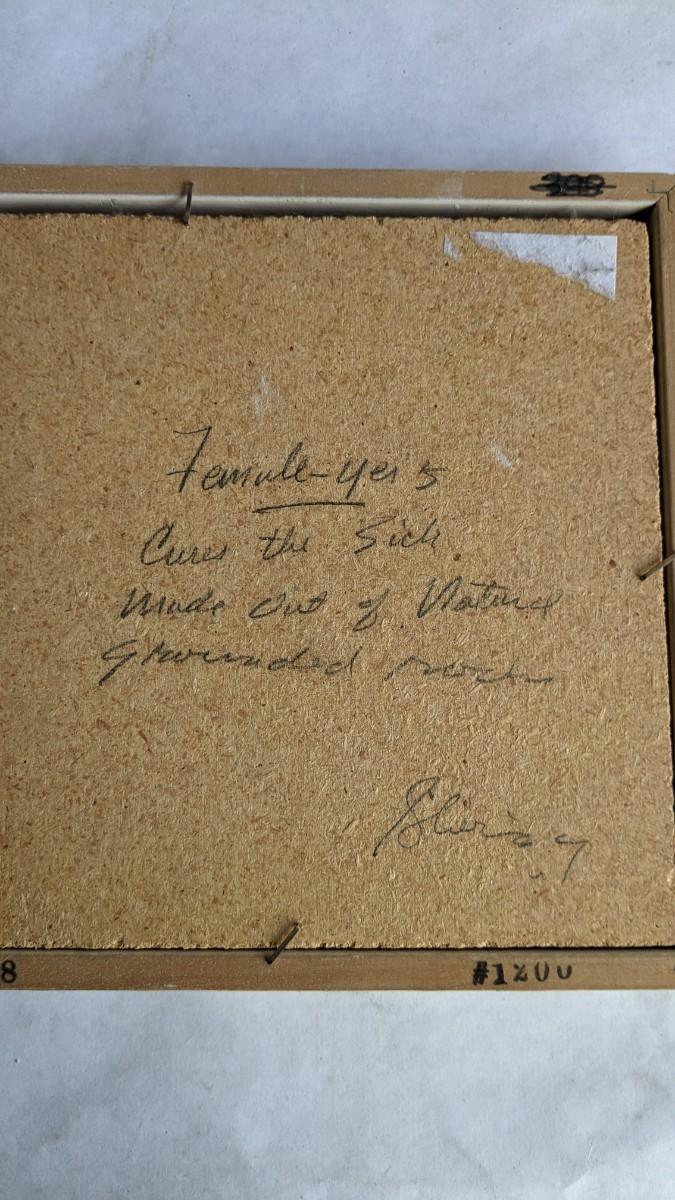 Female-Yei's
Cures the Sick
Made Out of Natural
Grounded rock
8
#1200